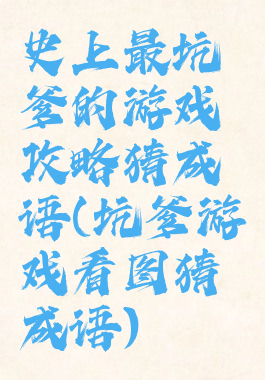 史上最坑
爹的游戏
攻略猜成
语(坑爹游
戏看图猜
成语)